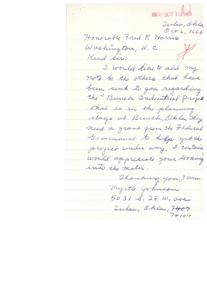 Tulsa, Okla.
Oct 6, 1966
Honorable Fred R Harris
Washington, D. C
Kind Sir:
I would like to add my
note to the others that have
been sent to you regarding
the "Bunch Industrial project
that is in the planning
stage at Bunch, Okla. They
need a grant from the Federal
Government to help get the
project under way. I certainly
would appreciate your looking
into the matter.
Thanking you, I am
Myrtle Johnson
5031 S. 28 W. ave
Tulsa, Okla, 7407
74107